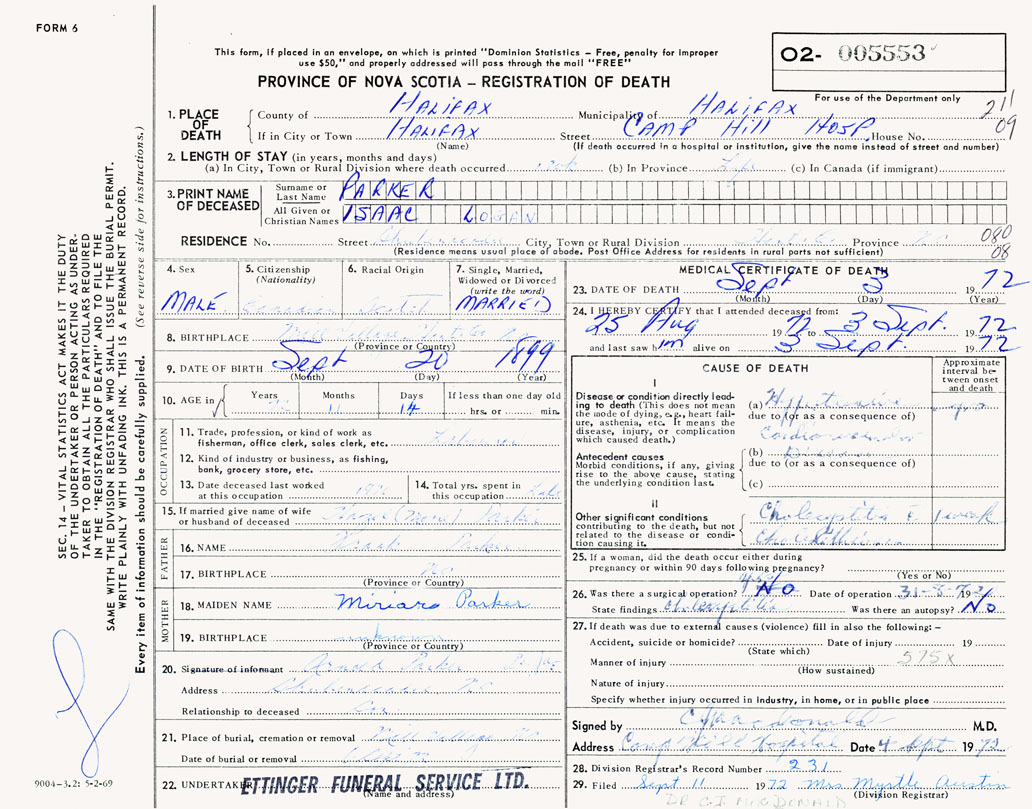 FORM 6
This form, if placed in an envelope, on which is printed "Dominion Statistics – Free, penalty for improper
use $50," and properly addressed will pass through the mail "FREE"
PROVINCE OF NOVA SCOTIA – REGISTRATION OF DEATH
O2- 005553
For use of the Department only
211
09
1. PLACE OF DEATH
County of HALIFAX Municipality of HALIFAX
If in City or Town HALIFAX Street CAMP Hill HOSP. House No.
(Name) (If death occurred in a hospital or institution, give the name instead of street and number)
2. LENGTH OF STAY (in years, months and days)
(a) In City, Town or Rural Division where death occurred (b) In Province Life (c) In Canada (if immigrant)
3. PRINT NAME OF DECEASED
Surname or Last Name PARKER
All Given or Christian Names ISAAC LOGAN
RESIDENCE No. Street City, Town or Rural Division Province
(Residence means usual place of abode. Post Office Address for residents in rural parts not sufficient)
080
08
4. Sex
MALE
5. Citizenship
(Nationality)
Canadian
6. Racial Origin
7. Single, Married,
Widowed or Divorced
(write the word)
MARRIED
8. BIRTHPLACE
(Province or Country)
9. DATE OF BIRTH Sept 20 1899
(Month) (Day) (Year)
10. AGE in Years 72 Months 11 Days 14 If less than one day old
hrs. or min.
OCCUPATION
11. Trade, profession, or kind of work as
fisherman, office clerk, sales clerk, etc.
12. Kind of industry or business, as fishing,
bank, grocery store, etc.
13. Date deceased last worked
at this occupation
14. Total yrs. spent in
this occupation
15. If married give name of wife
or husband of deceased Parker
FATHER
16. NAME Parker
17. BIRTHPLACE
(Province or Country)
MOTHER
18. MAIDEN NAME Parker
19. BIRTHPLACE unknown
(Province or Country)
20. Signature of informant Arnold Parker
Address
Relationship to deceased Son
21. Place of burial, cremation or removal Mill Village
Date of burial or removal
22. UNDERTAKER ETTINGER FUNERAL SERVICE LTD.
(Name and address)
MEDICAL CERTIFICATE OF DEATH
23. DATE OF DEATH Sept 3 1972
(Month) (Day) (Year)
24. I HEREBY CERTIFY that I attended deceased from:
25 Aug 1972 to 3 Sept. 1972
and last saw him alive on 3 Sept. 1972
CAUSE OF DEATH
Approximate interval between onset and death
I
Disease or condition directly leading to death (This does not mean the mode of dying, e.g., heart failure, asthenia, etc. It means the disease, injury, or complication which caused death.)
(a) Hypertensive
due to (or as a consequence of)
Antecedent causes
Morbid conditions, if any, giving rise to the above cause, stating the underlying condition last.
(b)
due to (or as a consequence of)
(c)
II
Other significant conditions contributing to the death, but not related to the disease or condition causing it.
1 week
25. If a woman, did the death occur either during
pregnancy or within 90 days following pregnancy?
(Yes or No)
26. Was there a surgical operation? NO Date of operation 31-8-72 19
State findings Was there an autopsy? NO
27. If death was due to external causes (violence) fill in also the following: –
Accident, suicide or homicide? Date of injury 19
(State which)
Manner of injury 575X
(How sustained)
Nature of injury
Specify whether injury occurred in industry, in home, or in public place
Signed by M.D.
Address Camp Hill Hospital Date 4 Sept 1972
28. Division Registrar's Record Number 231
29. Filed Sept 11 1972 Mrs Myrtle Austin
(Division Registrar)
DR C.J. MACDONALD
SEC. 14 – VITAL STATISTICS ACT MAKES IT THE DUTY
OF THE UNDERTAKER OR PERSON ACTING AS UNDER-
TAKER TO OBTAIN ALL THE PARTICULARS REQUIRED
IN THE "REGISTRATION OF DEATH" AND FILE THE
SAME WITH THE DIVISION REGISTRAR WHO SHALL ISSUE THE BURIAL PERMIT.
WRITE PLAINLY WITH UNFADING INK. THIS IS A PERMANENT RECORD.
Every item of information should be carefully supplied. (See reverse side for instructions.)
9004-3.2: 5-2-69